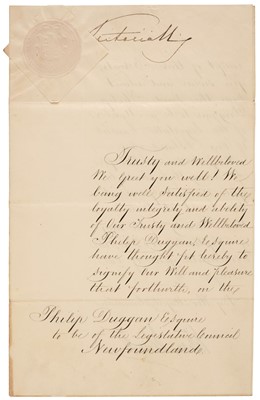 Victoria R
Trusty and Wellbeloved
We Greet you well! We
being well satisfied of the
loyalty integrity and ability
of Our Trusty and Wellbeloved
Philip Duggan, Esquire
have thought fit hereby to
signify Our Will and Pleasure
that forthwith, on the
Philip Duggan Esquire
to be of the Legislative Council
Newfoundland